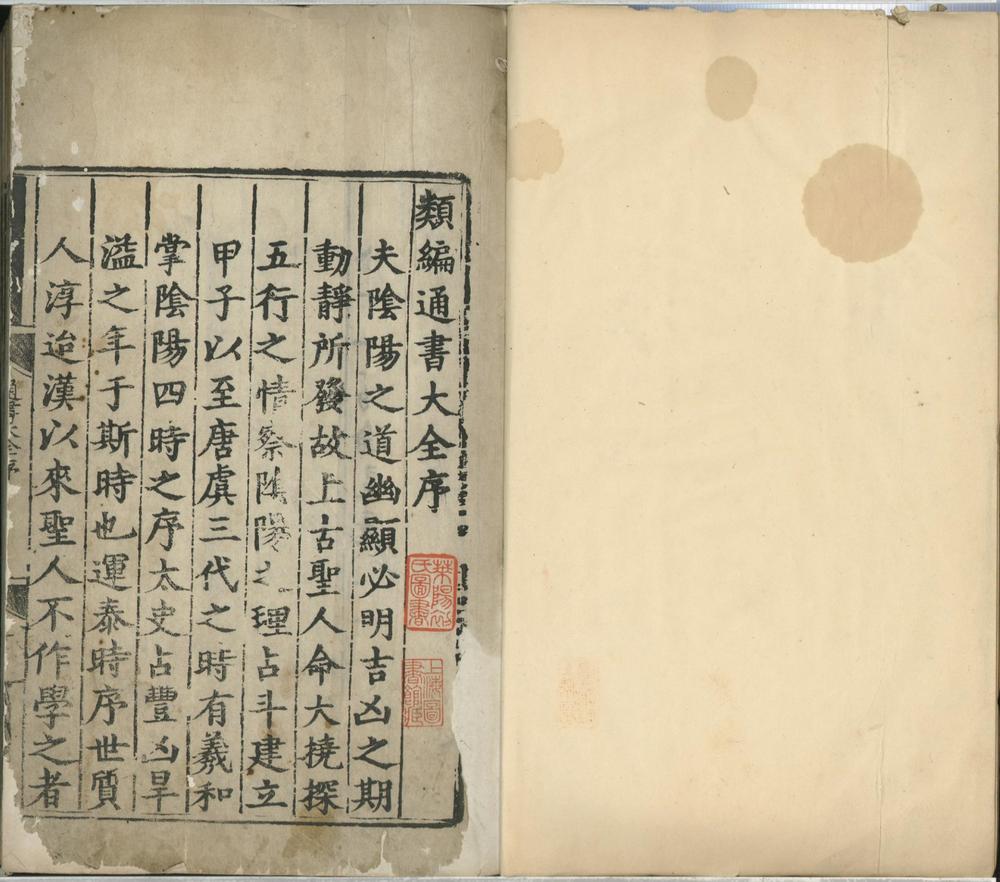 類編通書大全序
夫陰陽之道幽顯必明吉凶之期
動靜所發故上古聖人命大撓探
五行之情察陰陽之理占斗建立
甲子以至唐虞三代之時有羲和
掌陰陽四時之序太史占豐凶旱
溢之年于斯時也運泰時序世質
人淳迨漢以來聖人不作學之者
上海圖書館藏